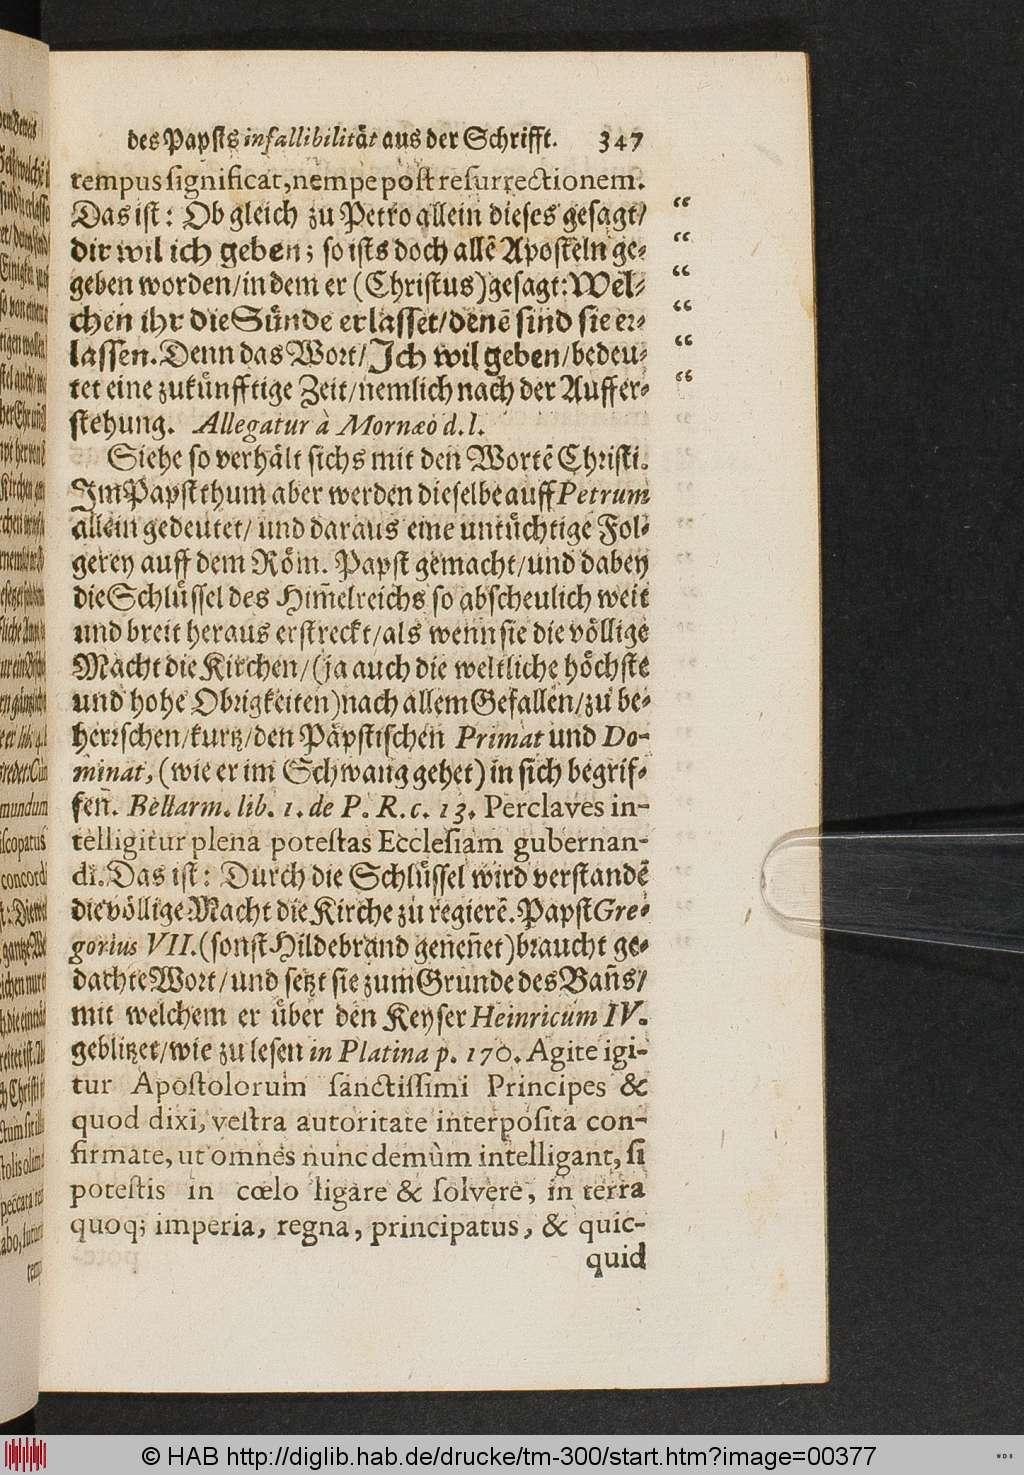 des Papsts infallibilität aus der Schrifft. 347
tempus significat, nempe post resurrectionem.
Das ist: Ob gleich zu Petro allein dieses gesagt/ “
dir wil ich geben; so ists doch allē Aposteln ge- “
geben worden/ in dem er (Christus) gesagt: Wel- “
chen ihr die Sünde erlasset/ denē sind sie er- “
lassen. Denn das Wort/ Ich wil geben/ bedeu- “
tet eine zukünfftige Zeit/ nemlich nach der Auffer- “
stehung. Allegatur à Mornæo d. l.
Siehe so verhält sichs mit den Wortē Christi.
Im Papstthum aber werden dieselbe auff Petrum
allein gedeutet/ und daraus eine untüchtige Fol-
gerey auff dem Röm. Papst gemacht/ und dabey
die Schlüssel des Him̄elreichs so abscheulich weit
und breit heraus erstreckt/ als wenn sie die völlige
Macht die Kirchen/ (ja auch die weltliche höchste
und hohe Obrigkeiten) nach allem Gefallen/ zu be-
herrschen/ kurtz/ den Päpstischen Primat und Do-
minat, (wie er im Schwang gehet) in sich begrif-
fen̄. Bellarm. lib. 1. de P. R. c. 13. Per claves in-
telligitur plena potestas Ecclesiam gubernan-
di. Das ist: Durch die Schlüssel wird verstandē
die völlige Macht die Kirche zu regierē. Papst Gre-
gorius VII. (sonst Hildebrand genen̄et) braucht ge-
dachte Wort/ und setzt sie zum Grunde des Ban̄s/
mit welchem er über den Keyser Heinricum IV.
geblitzet/ wie zu lesen in Platina p. 170. Agite igi-
tur Apostolorum sanctissimi Principes &
quod dixi, vestra autoritate interposita con-
firmate, ut omnes nunc demùm intelligant, si
potestis in cœlo ligare & solvere, in terra
quoq; imperia, regna, principatus, & quic-
quid
© HAB http://diglib.hab.de/drucke/tm-300/start.htm?image=00377